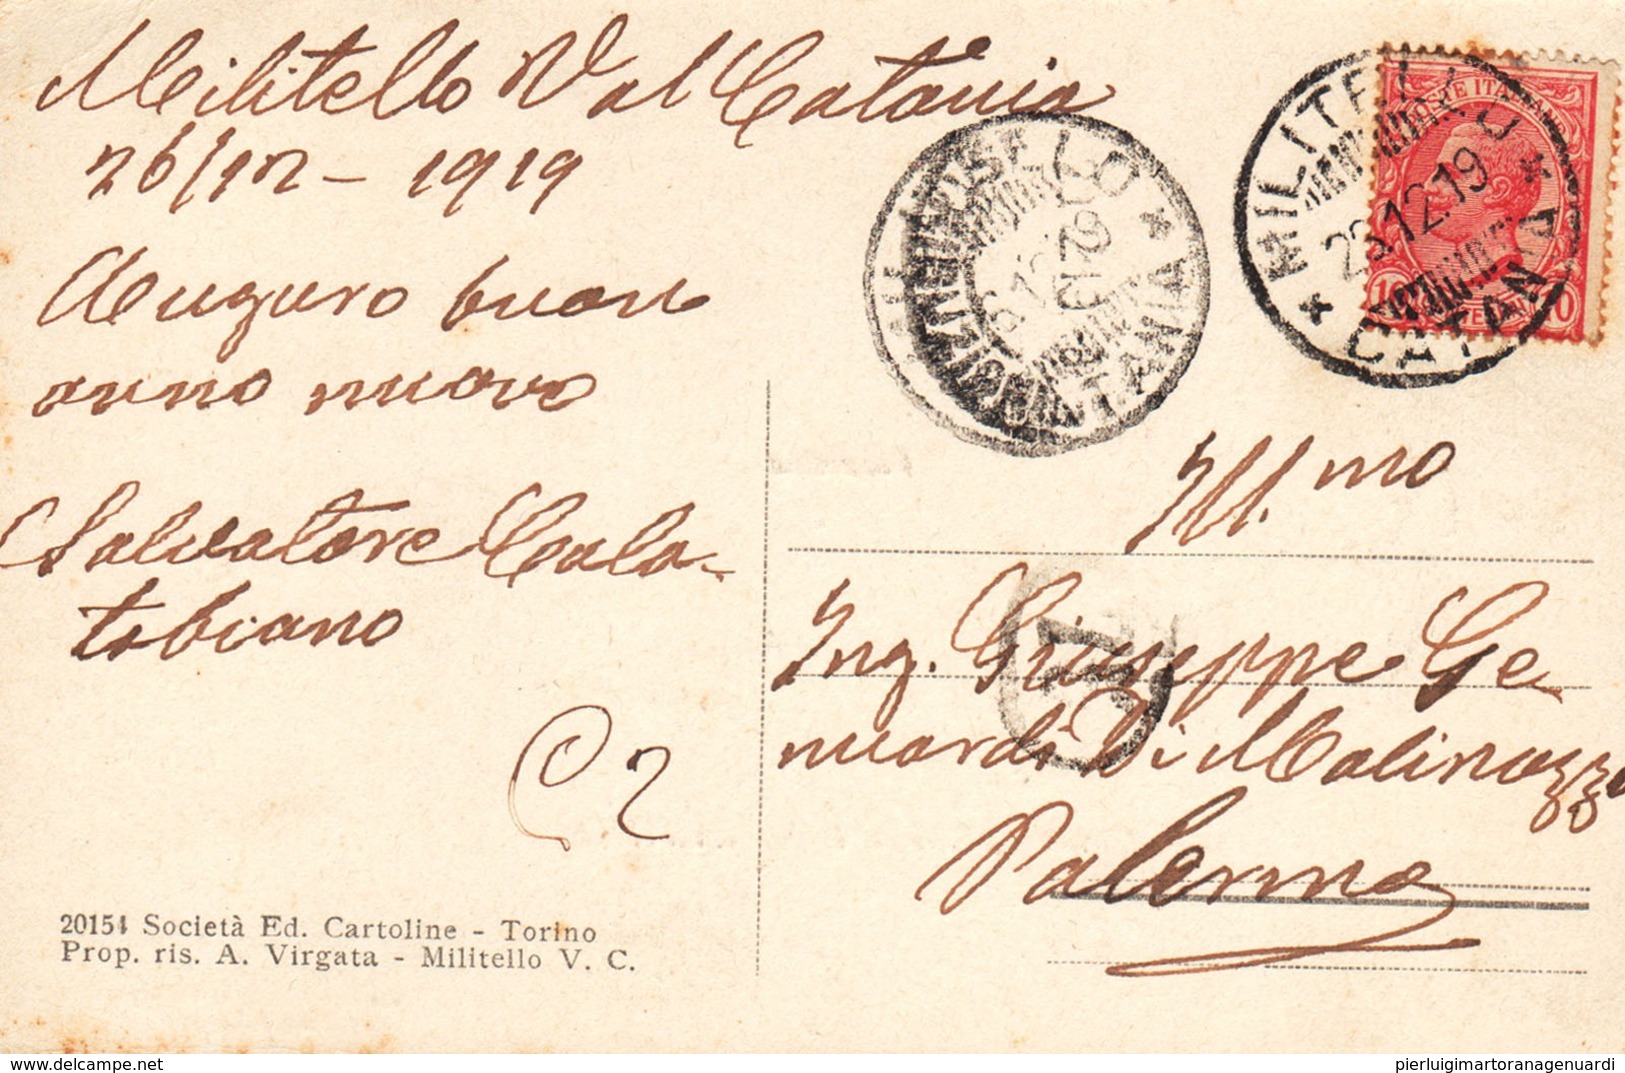 Militello Val Catania
26/12 - 1919
Auguro buon
anno nuovo
Salvatore Cala-
tabiano
MILITELLO * CATANIA *
26.12.19
POSTE ITALIANE
10 10
Ill.mo
Ing. Giuseppe Ge-
nuardi Di Molinazzo
Palermo
20151 Società Ed. Cartoline - Torino
Prop. ris. A. Virgata - Militello V. C.
pierluigimartoranagenuardi